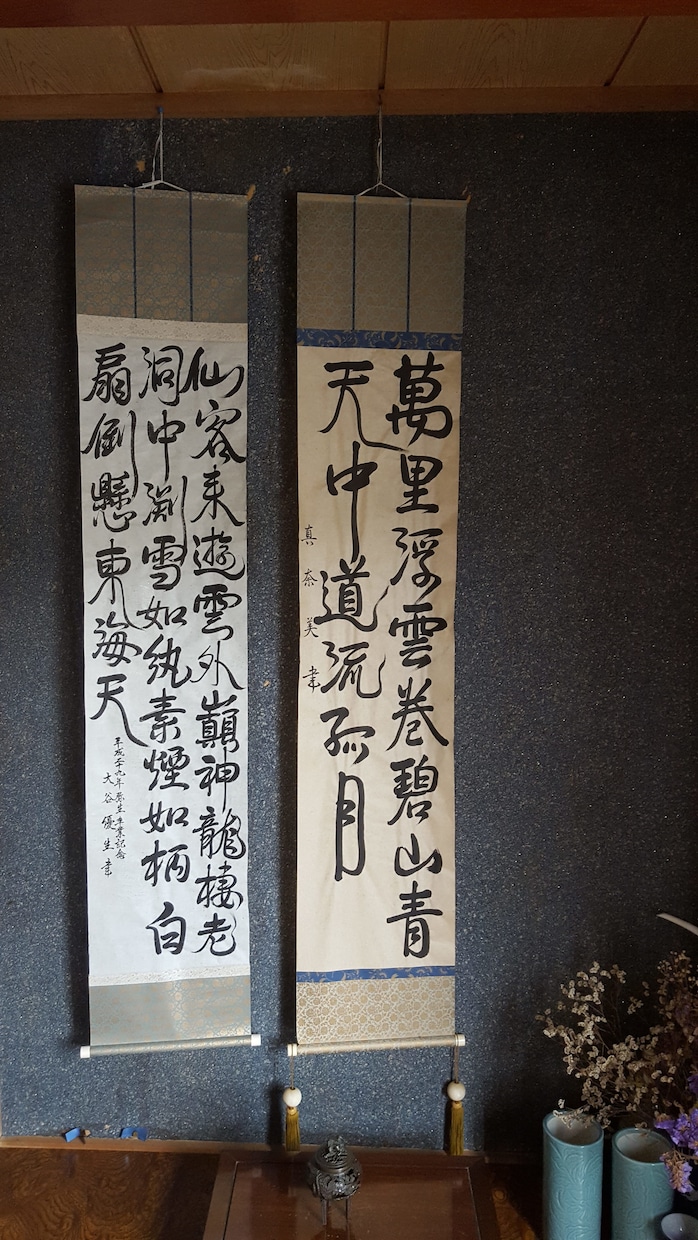 萬里浮雲卷碧山青
天中道流孤月
真奈美書
仙客来遊雲外巓神龍棲老
洞中淵雪如紈素煙如柄白
扇倒懸東海天
平成二十九年弥生卒業記念
大谷優生書